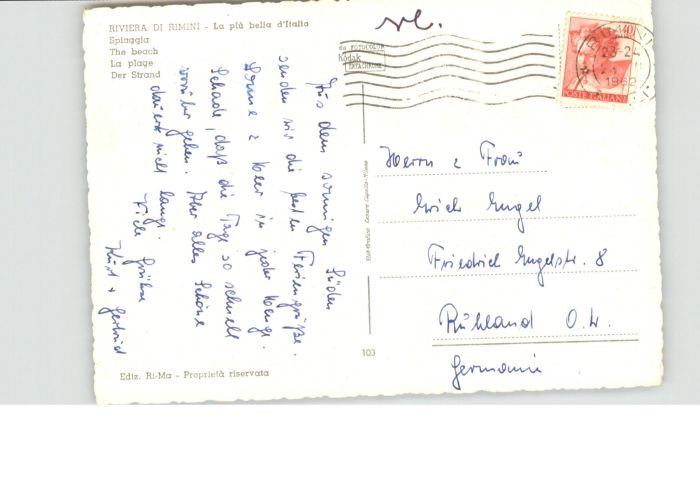 RIVIERA DI RIMINI - La più bella d'Italia
Spiaggia
The beach
La plage
Der Strand
da FOTOCOLOR
Kodak
EKTACHROME
RIMINI
23-24
1962
POSTE ITALIANE
Aus dem sonnigen Süden
senden wir die besten Feriengrüße.
Sonne & Meer in jeder Menge.
Schade, daß die Tage so schnell
vorüber gehen. Aber alles Schöne
dauert nicht lange.
Viele Grüße
Kurt + Gertrud
Herrn & Frau
Erich Engel
Friedrich Engelstr. 8
Ruhland O.L.
Germania
103
Ediz. Ri-Ma - Proprietà riservata